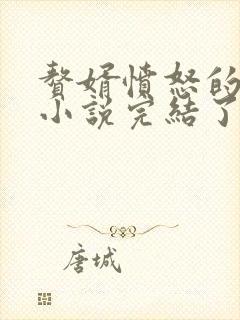 赘婿憤怒的
小説完結了
唐城